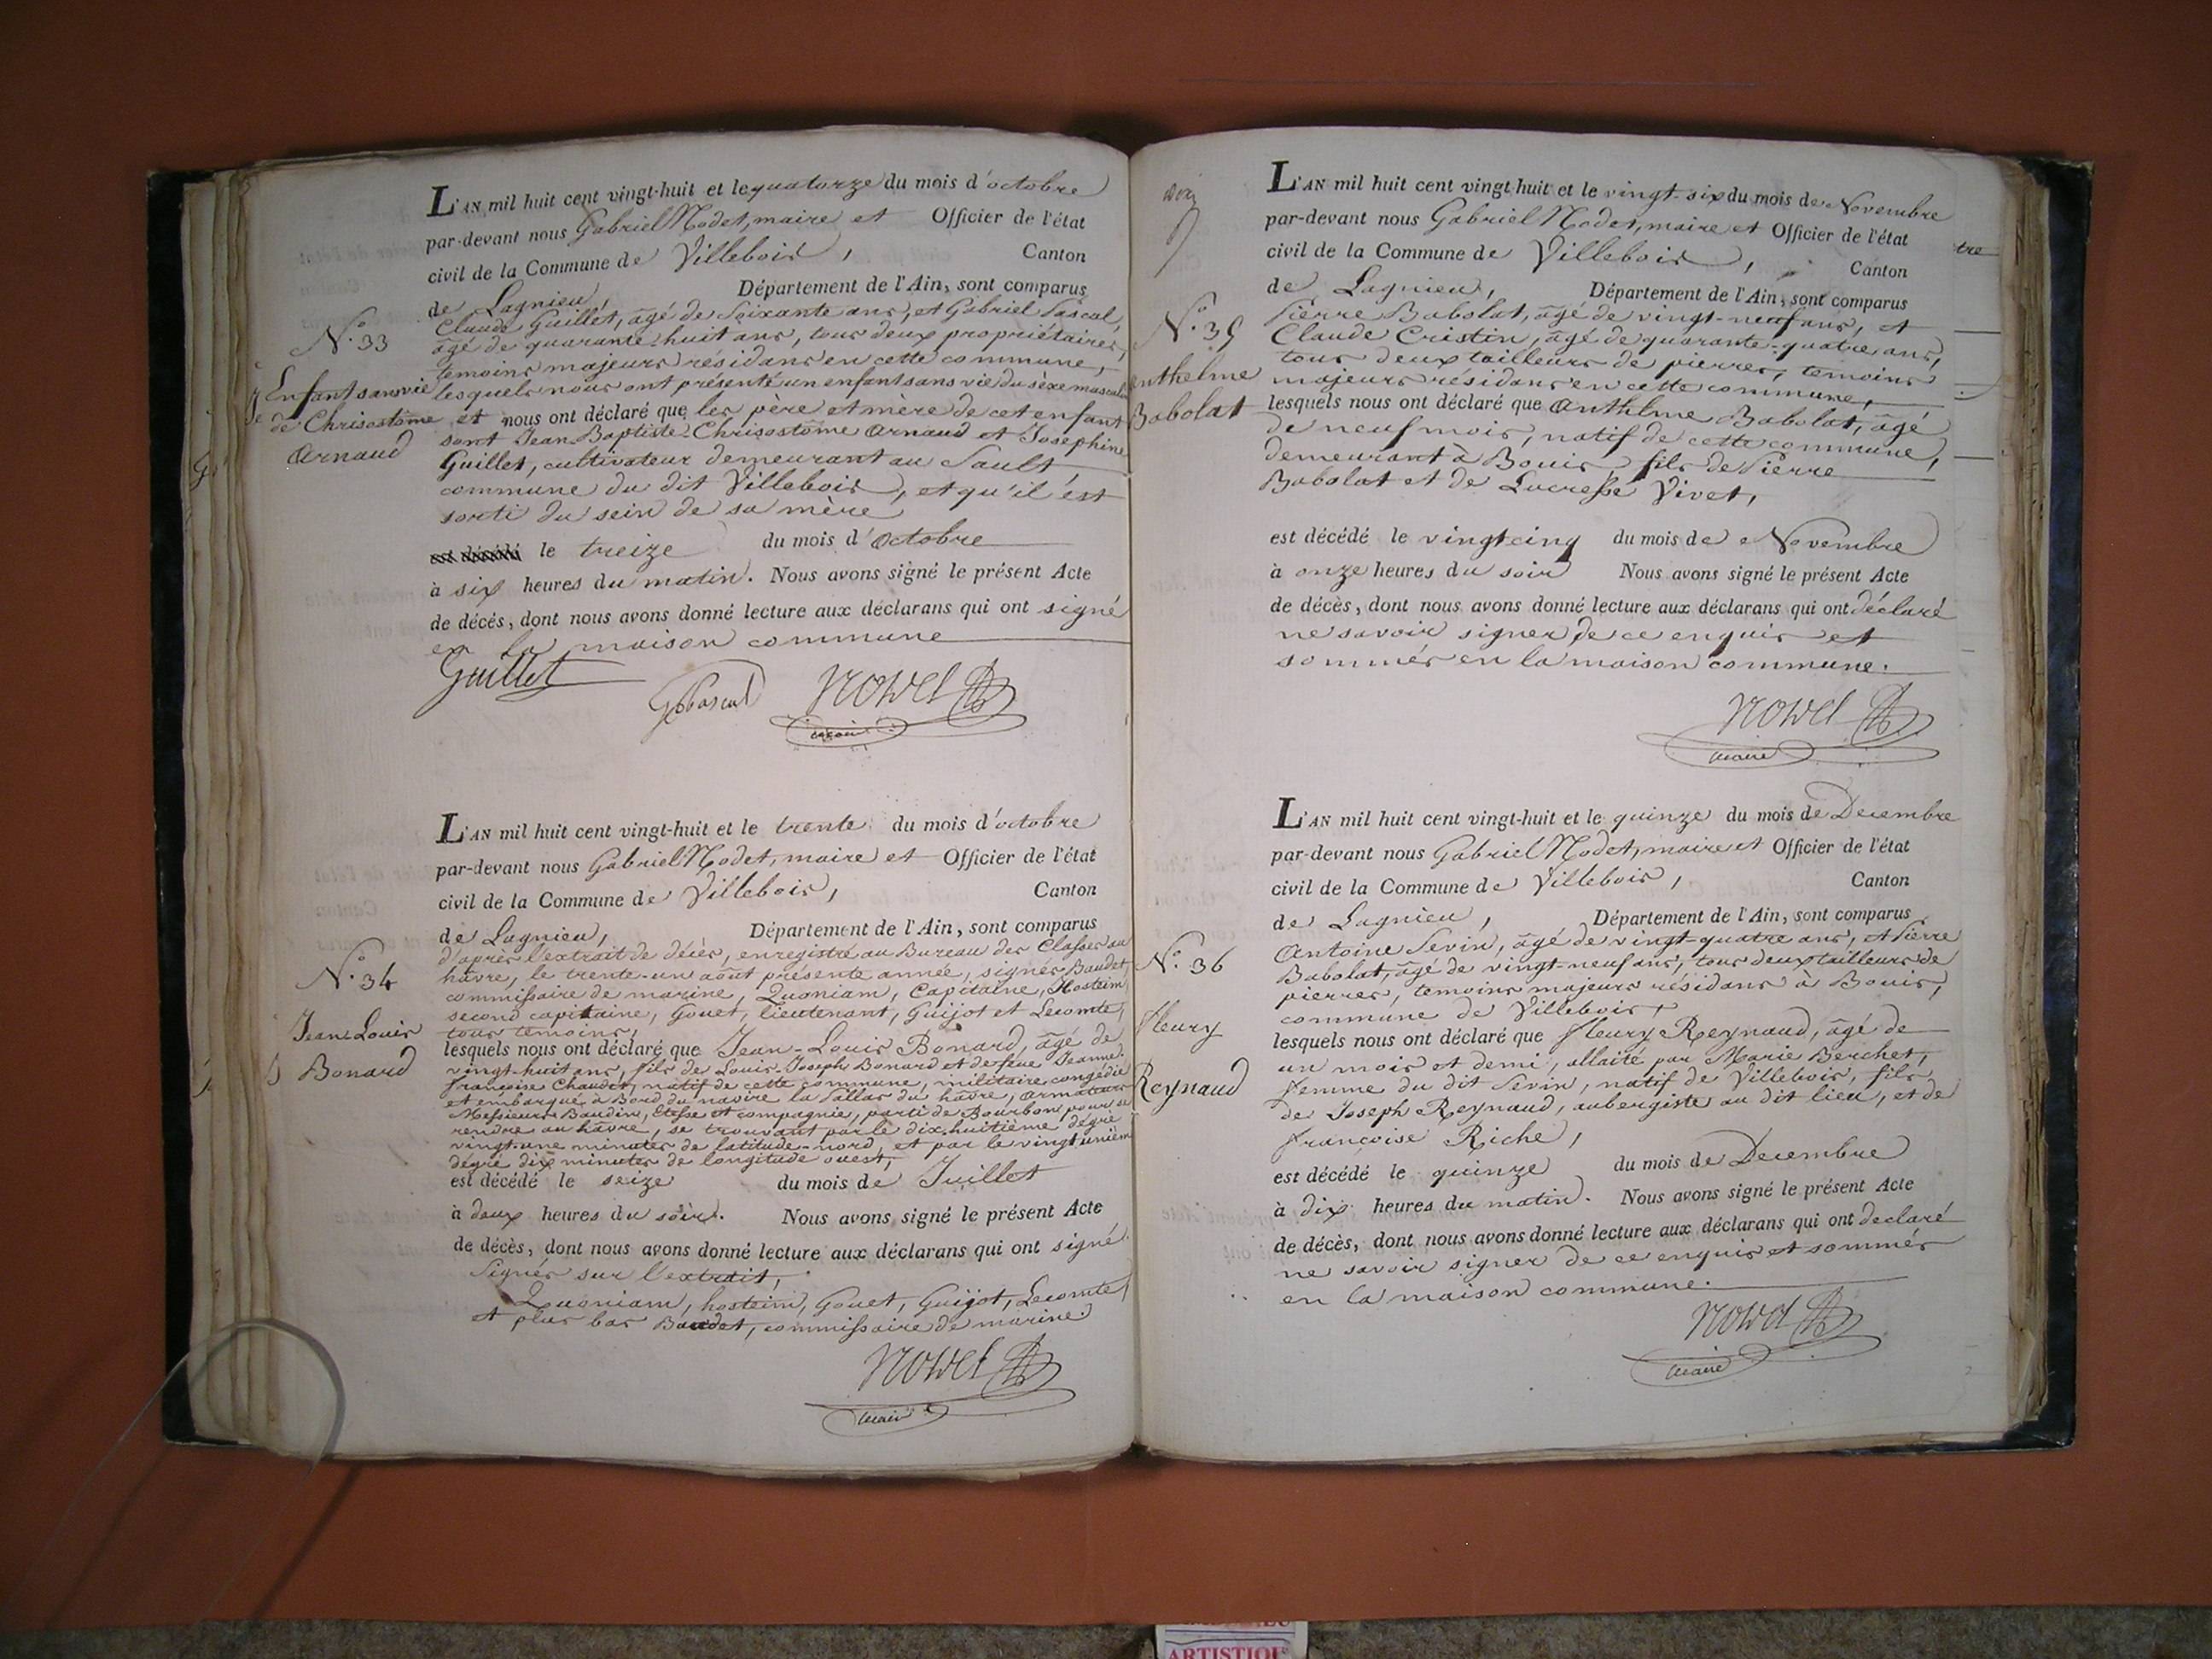 L'AN mil huit cent vingt-huit et le quatorze du mois d'octobre
par-devant nous Gabriel Nodet, maire et Officier de l'état
civil de la Commune de Villebois, Canton
de Lagnieu, Département de l'Ain, sont comparus
Claude Guillet, âgé de Soixante ans, et Gabriel Pascal,
âgé de quarante huit ans, tous deux propriétaires,
temoins majeurs résidans en cette commune,
lesquels nous ont présenté un enfant sans vie du sèxe masculin
et nous ont déclaré que les père et mère de cet enfant
sont Jean Baptiste Chrisostôme Arnaud et Josephine
Guillet, cultivateur demeurant au Sault
commune du dit Villebois, et qu'il est
sorti du sein de sa mère
est décédé le treize du mois d'Octobre
à six heures du matin. Nous avons signé le présent Acte
de décés, dont nous avons donné lecture aux déclarans qui ont signé
en la maison commune
Guillet
Gb Pascal
Nodet
maire
N.o 33
Enfant sans vie
de Chrisostôme
Arnaud
L'AN mil huit cent vingt-huit et le trente du mois d'octobre
par-devant nous Gabriel Nodet, maire et Officier de l'état
civil de la Commune de Villebois, Canton
de Lagnieu, Département de l'Ain, sont comparus
d'après l'extrait de décès, enregistré au Bureau des Classes au
hâvre, le trente-un août présente année, signés Baudet,
commissaire de marine, Quoniam, Capitaine, Hosteim
second capitaine, Gouet, lieutenant, Guijot et Lecomte,
tous temoins,
lesquels nous ont déclaré que Jean-Louis Bonard, âgé de
vingt-huit ans, fils de Louis-Joseph Bonard et de feue Jeanne
françoise Chaudet, natif de cette commune, militaire congédié
et embarqué à Bord du navire la Pallas du hâvre, armateurs
Messieurs Baudin, Etesse et compagnie, parti de Bourbon pour se
rendre au hâvre, se trouvant par le dix-huitième dégré
vingt-une minutes de latitude-nord, et par le vingt unièm
dégré dix minutes de longitude ouest,
est décédé le seize du mois de Juillet
à deux heures du soir. Nous avons signé le présent Acte
de décès, dont nous avons donné lecture aux déclarans qui ont signé
Signés sur l'extrait,
Quoniam, hosteim, Gouet, Guijot, Lecomte,
et plus bas Baudet, commissaire de marine.
Nodet
maire
N.o 34
Jean-Louis
Bonard
L'AN mil huit cent vingt-huit et le vingt-six du mois de Novembre
par-devant nous Gabriel Nodet, maire et Officier de l'état
civil de la Commune de Villebois, Canton
de Lagnieu, Département de l'Ain, sont comparus
Pierre Babolat, âgé de vingt-neuf ans, et
Claude Cristin, âgé de quarante-quatre ans,
tous deux tailleurs de pierres, temoins
majeurs résidans en cette commune,
lesquels nous ont déclaré que Anthelme Babolat, âgé
de neuf mois, natif de cette commune,
demeurant à Bouis, fils de Pierre
Babolat et de Lucresse Vivet,
est décédé le vingt cinq du mois de Novembre
à onze heures du soir Nous avons signé le présent Acte
de décès, dont nous avons donné lecture aux déclarans qui ont déclaré
ne savoir signer de ce enquis et
sommés en la maison commune.
Nodet
maire
N.o 35
anthelme
Babolat
tre
L'AN mil huit cent vingt-huit et le quinze du mois de Decembre
par-devant nous Gabriel Nodet, maire et Officier de l'état
civil de la Commune de Villebois, Canton
de Lagnieu, Département de l'Ain, sont comparus
Antoine Sevin, âgé de vingt-quatre ans, et Pierre
Babolat, âgé de vingt-neuf ans, tous deux tailleurs de
pierres, temoins majeurs résidans à Bouis,
commune de Villebois,
lesquels nous ont déclaré que fleury Reynaud, âgé de
un mois et demi, allaité par Marie Berchet,
femme du dit Sevin, natif de Villebois, fils
de Joseph Reynaud, aubergiste au dit lieu, et de
françoise Riche,
est décédé le quinze du mois de Decembre
à dix heures du matin. Nous avons signé le présent Acte
de décès, dont nous avons donné lecture aux déclarans qui ont declaré
ne savoir signer de ce enquis et sommés
en la maison commune.
Nodet
maire
N.o 36
fleury
Reynaud
ARTISTIQU